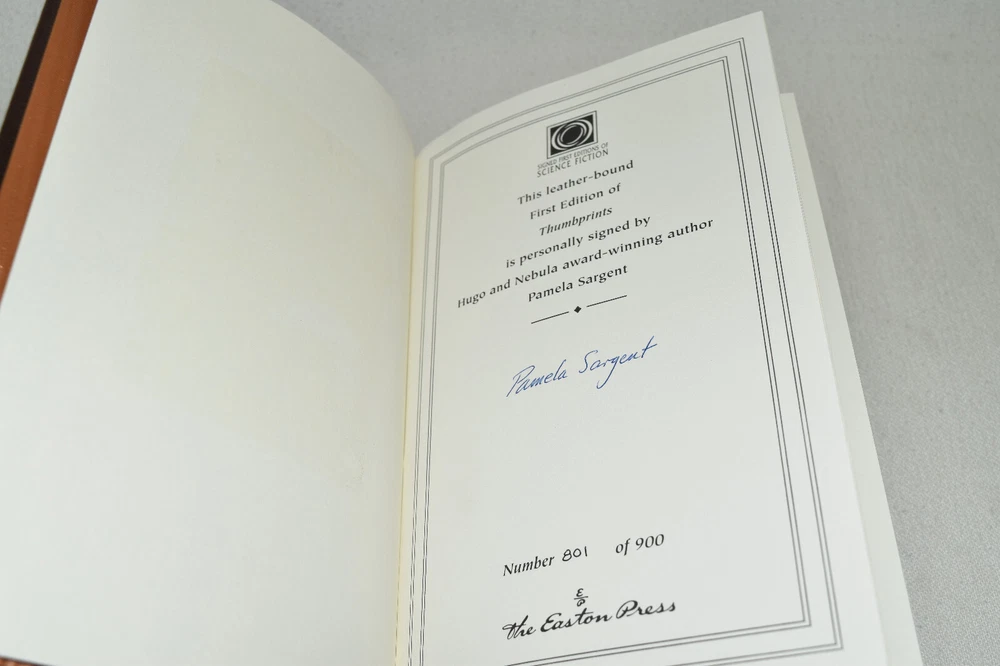 SIGNED FIRST EDITIONS OF
SCIENCE FICTION
This leather-bound
First Edition of
Thumbprints
is personally signed by
Hugo and Nebula award-winning author
Pamela Sargent
Pamela Sargent
Number 801 of 900
E
P
the Easton Press